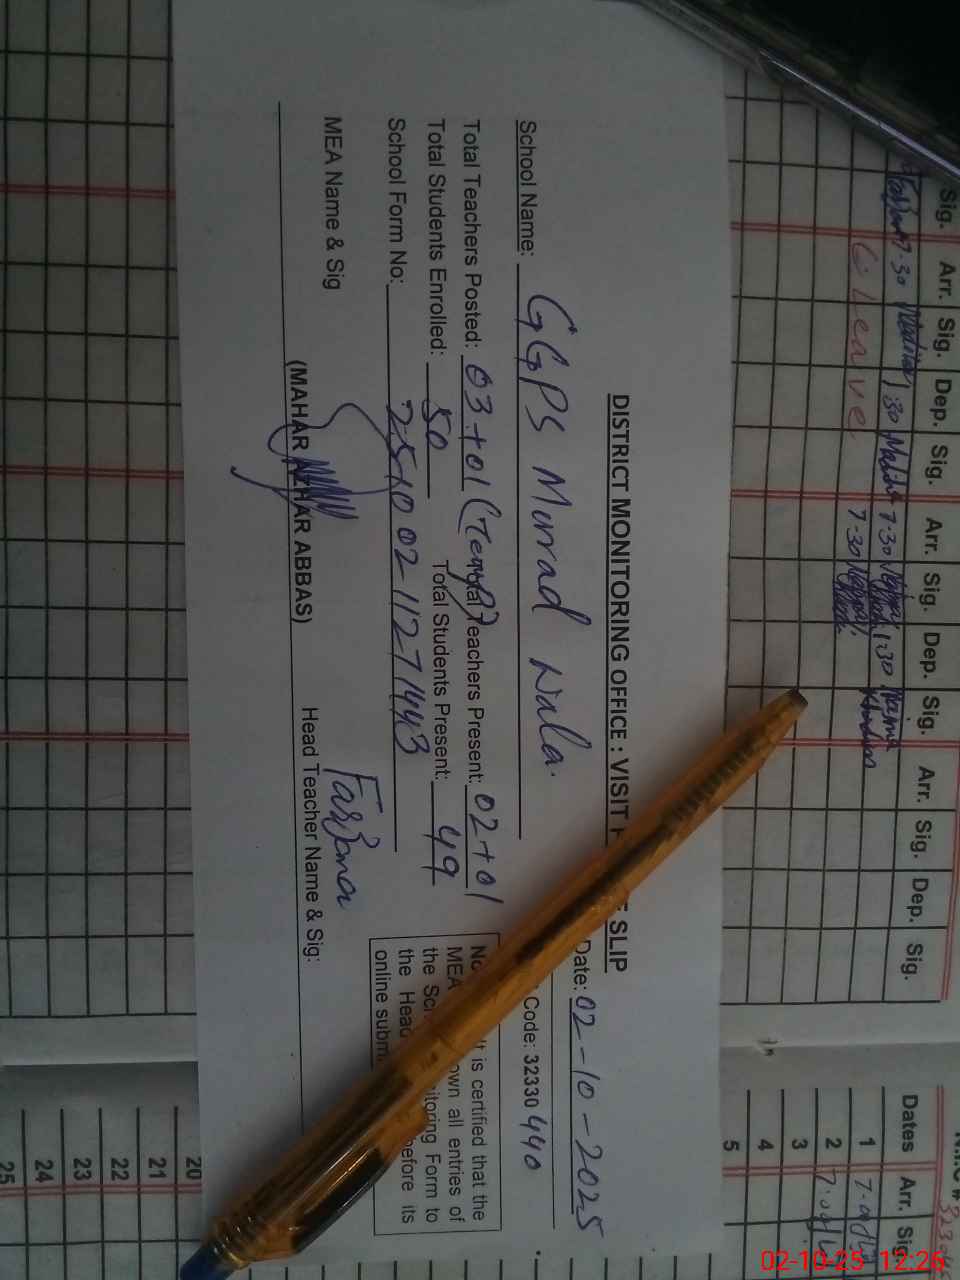 DISTRICT MONITORING OFFICE : VISIT SLIP
Date: 02-10-2025
School Name: GGPS Murad Wala. Code: 32330440
Total Teachers Posted: 03+01 Teachers Present: 02+01
Total Students Enrolled: 50 Total Students Present: 49
School Form No: 251002-11271443
MEA Name & Sig
(MAHAR AZHAR ABBAS)
Head Teacher Name & Sig:
Farzana
It is certified that the
MEA own all entries of
the itoring Form to
the Head before its
online subm
Sig. Arr. Sig. Dep. Sig. Arr. Sig. Dep. Sig. Arr. Sig. Dep. Sig.
7-30 1:30 7-30 1:30
Leave 7-30
Dates Arr.
1
2
3
4
5
20
21
22
23
24
25
02-10-25 12:26